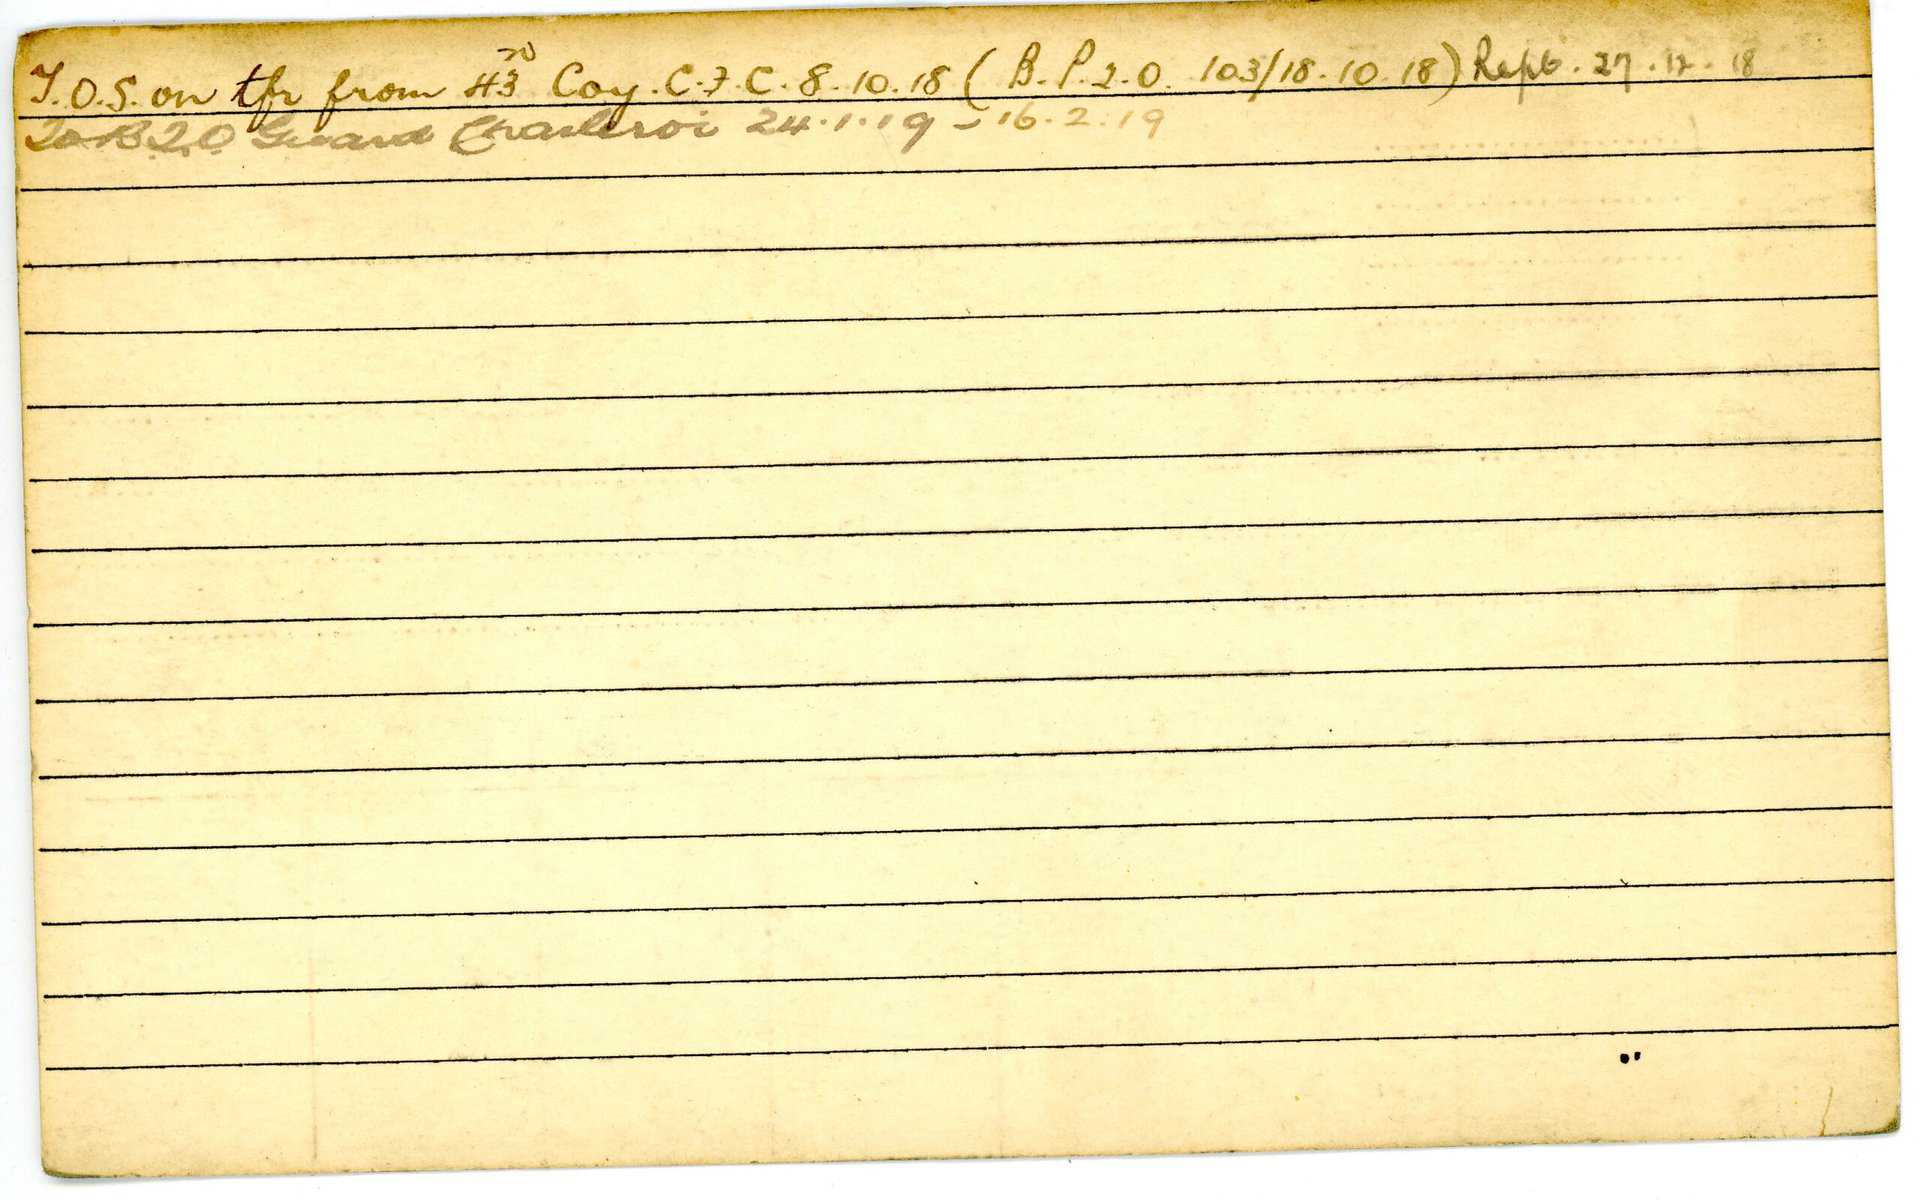 T.O.S. on tfr from 43rd Coy. C.F.C. 8.10.18 (B.P.2.O. 103/18.10.18) Rept. 27.12.18
To B.2.O Guard Charleroi 24.1.19 - 16.2.19